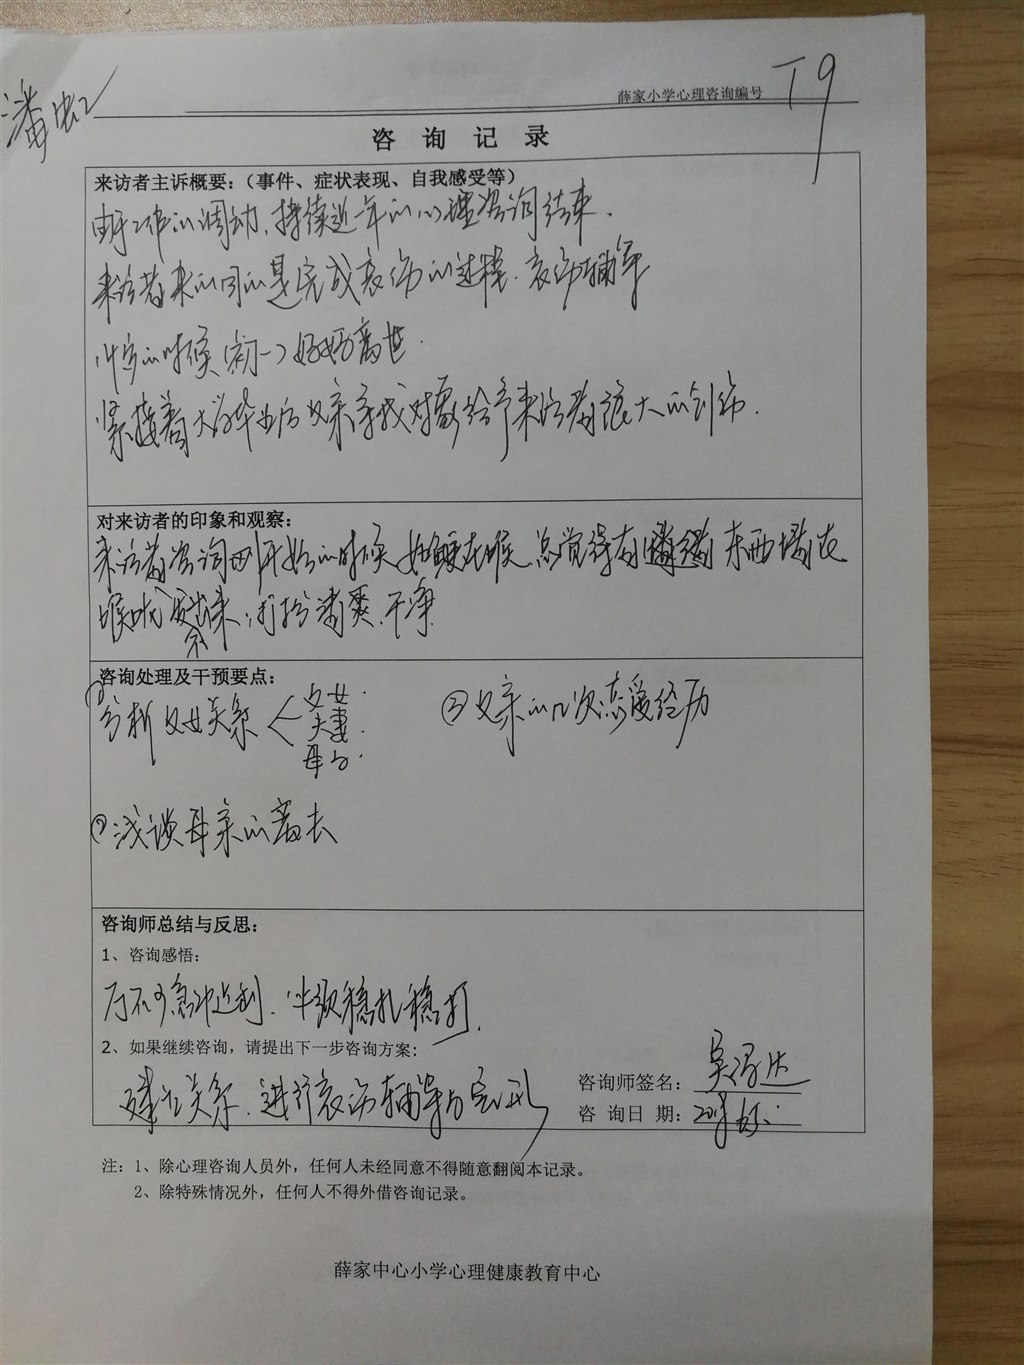 潘虹
薛家小学心理咨询编号 T9
咨 询 记 录
来访者主诉概要:（事件、症状表现、自我感受等）
由于工作的调动、持续近一年的心理咨询结束.
来访者来的目的是完成哀伤的过程. 哀伤辅导
小时的时候(初一) 妈妈离世.
紧接着大学毕业后父亲寻找对象给予来访者很大的创伤.
对来访者的印象和观察:
来访者咨询 开始的时候 如鲠在喉、总觉得有 东西堵在
喉咙 出不来；打扮清爽、干净.
咨询处理及干预要点:
① 分析父女关系 < 父女. 夫妻. 母子. ③ 父亲的几次恋爱经历
② 浅谈母亲的离去
咨询师总结与反思:
1、咨询感悟:
万不可急功近利. 必须稳扎稳打.
2、如果继续咨询，请提出下一步咨询方案:
建立关系. 进行哀伤辅导与完形
咨询师签名:
咨 询 日 期:
注: 1、除心理咨询人员外，任何人未经同意不得随意翻阅本记录。
2、除特殊情况外，任何人不得外借咨询记录。
薛家中心小学心理健康教育中心